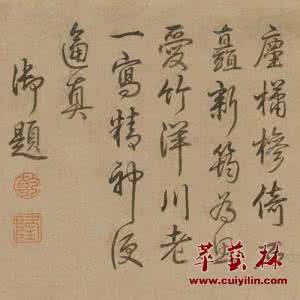 塵橚槮倚
矗新筠為思
愛竹洋川老
一寫精神便
逼真
御題
乾
隆
萃藝林
www.cuiyilin.com